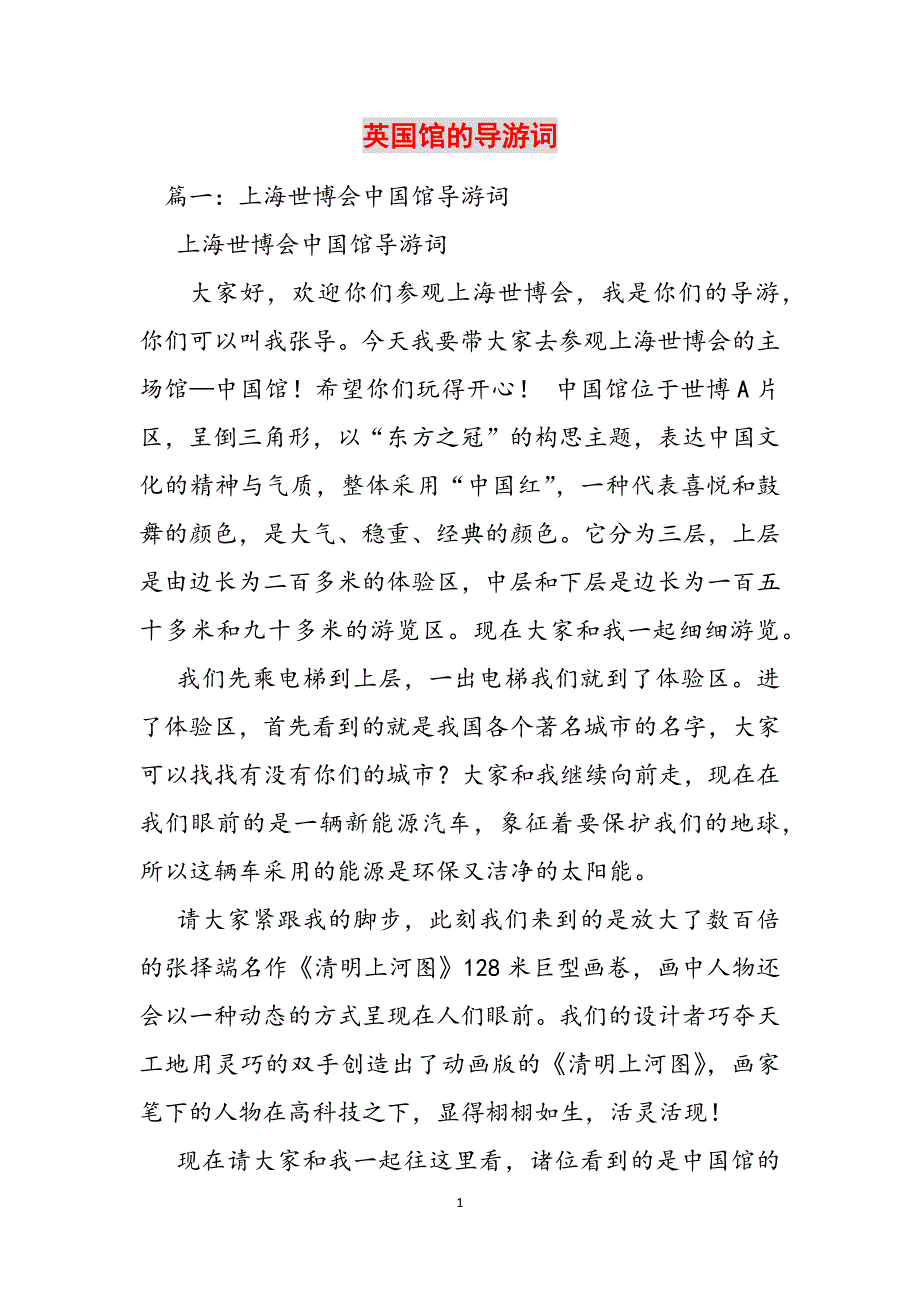 英国馆的导游词
篇一：上海世博会中国馆导游词
上海世博会中国馆导游词
大家好，欢迎你们参观上海世博会，我是你们的导游，
你们可以叫我张导。今天我要带大家去参观上海世博会的主
场馆—中国馆！希望你们玩得开心！ 中国馆位于世博 A 片
区，呈倒三角形，以“东方之冠”的构思主题，表达中国文
化的精神与气质，整体采用“中国红”，一种代表喜悦和鼓
舞的颜色，是大气、稳重、经典的颜色。它分为三层，上层
是由边长为二百多米的体验区，中层和下层是边长为一百五
十多米和九十多米的游览区。现在大家和我一起细细游览。
我们先乘电梯到上层，一出电梯我们就到了体验区。进
了体验区，首先看到的就是我国各个著名城市的名字，大家
可以找找有没有你们的城市？大家和我继续向前走，现在在
我们眼前的是一辆新能源汽车，象征着要保护我们的地球，
所以这辆车采用的能源是环保又洁净的太阳能。
请大家紧跟我的脚步，此刻我们来到的是放大了数百倍
的张择端名作《清明上河图》128 米巨型画卷，画中人物还
会以一种动态的方式呈现在人们眼前。我们的设计者巧夺天
工地用灵巧的双手创造出了动画版的《清明上河图》，画家
笔下的人物在高科技之下，显得栩栩如生，活灵活现！
现在请大家和我一起往这里看，诸位看到的是中国馆的
1